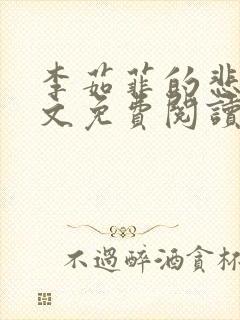 李茹菲的悲
文免費閱讀
不過醉酒貪杯